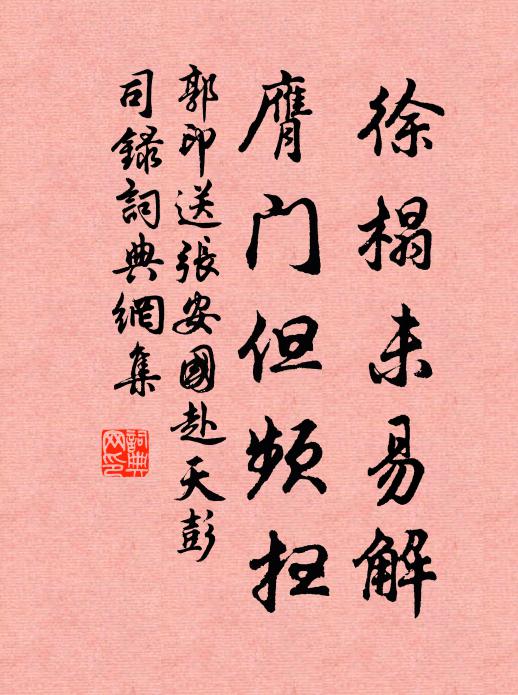 徐榻未易解
膺门但频扫
郭印送張安國赴天彭
司錄詞典網集
詞典
网印